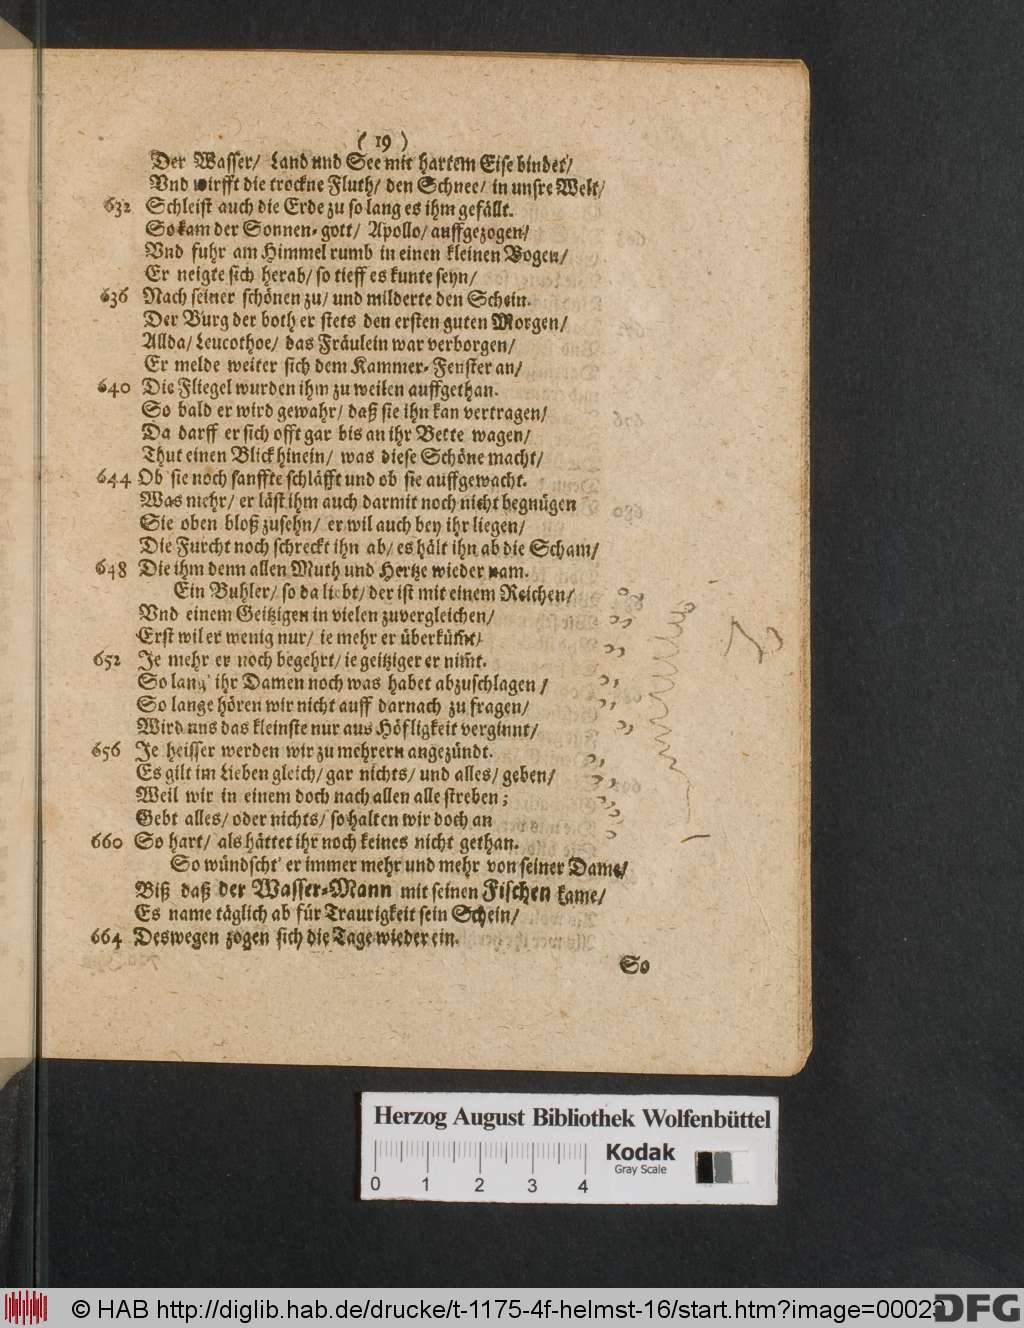 ( 19 )
Der Wasser/ Land und See mit hartem Eise bindet/
Vnd wirfft die trockne Fluth/ den Schnee/ in unsre Welt/
632 Schleist auch die Erde zu so lang es ihm gefällt.
So kam der Sonnen-gott/ Apollo/ auffgezogen/
Vnd fuhr am Himmel rumb in einen kleinen Bogen/
Er neigte sich herab/ so tieff es kunte seyn/
636 Nach seiner schönen zu/ und milderte den Schein.
Der Burg der both er stets den ersten guten Morgen/
Allda/ Leucothoe/ das Fräulein war verborgen/
Er melde weiter sich dem Kammer-Fenster an/
640 Die Fliegel wurden ihm zu weilen auffgethan.
So bald er wird gewahr/ daß sie ihn kan vertragen/
Da darff er sich offt gar bis an ihr Bette wagen/
Thut einen Blick hinein/ was diese Schöne macht/
644 Ob sie noch sanffte schläfft und ob sie auffgewacht.
Was mehr/ er läst ihm auch darmit noch nicht begnügen
Sie oben bloß zusehn/ er wil auch bey ihr liegen/
Die Furcht noch schreckt ihn ab/ es hält ihn ab die Scham/
648 Die ihm denn allen Muth und Hertze wieder nam.
Ein Buhler/ so da liebt/ der ist mit einem Reichen/
Vnd einem Geitzigen in vielen zuvergleichen/
Erst wil er wenig nur/ ie mehr er überküm̃t/
652 Je mehr er noch begehrt/ ie geitziger er nim̃t.
So lang' ihr Damen noch was habet abzuschlagen/
So lange hören wir nicht auff darnach zu fragen/
Wird uns das kleinste nur aus Höfligkeit verginnt/
656 Je heisser werden wir zu mehrern angezündt.
Es gilt im Lieben gleich/ gar nichts/ und alles/ geben/
Weil wir in einem doch nach allen alle streben;
Gebt alles/ oder nichts/ so halten wir doch an
660 So hart/ als hättet ihr noch keines nicht gethan.
So wündscht' er immer mehr und mehr von seiner Dame/
Biß daß der Wasser-Mann mit seinen Fischen kame/
Es name täglich ab für Traurigkeit sein Schein/
664 Deswegen zogen sich die Tage wieder ein.
So
Herzog August Bibliothek Wolfenbüttel
Kodak
Gray Scale
0 1 2 3 4
© HAB http://diglib.hab.de/drucke/t-1175-4f-helmst-16/start.htm?image=00023
DFG